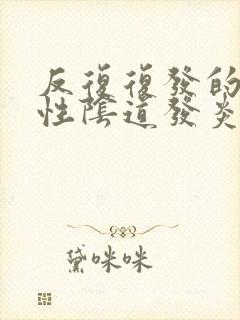 反復復發的
性陰道發炎
黛咪咪